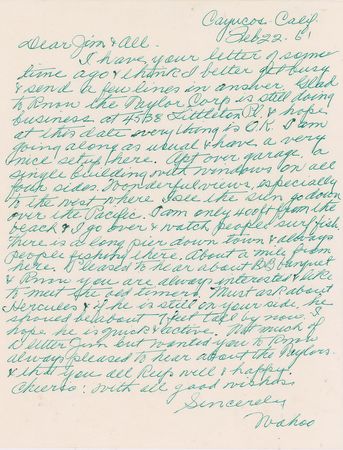 Cayucos Calif.
Feb 22 - 61
Dear Jim & All.
I have your letter of some
time ago & think I better get busy
& send a few lines in answer. Glad
to know the Naylor Corp is still doing
business at 4538 Littleton Pl. & hope
at this date everything is O.K. I am
going along as usual & have a very
nice setup here. Apt over garage, a
single building with windows on all
four sides. Wonderful views, especially
to the west where I see the sun go down
over the Pacific. I am only 400 ft from the
beach & I go over & watch people surf fish.
There is a long pier down town & always
people fishing there. About a mile from
here. Pleased to hear about BB banquet
& know you are always interested & like
to meet the old timers. Must ask about
Hercules & if he is still on your side, he
should be about 1 feet tall by now. I
hope he is quick & active. Not much of
a letter Jim but wanted you to know
always pleased to hear about the Naylors
& that you all keep well & happy.
Cheerio! with all good wishes
Sincerely
Wahoo